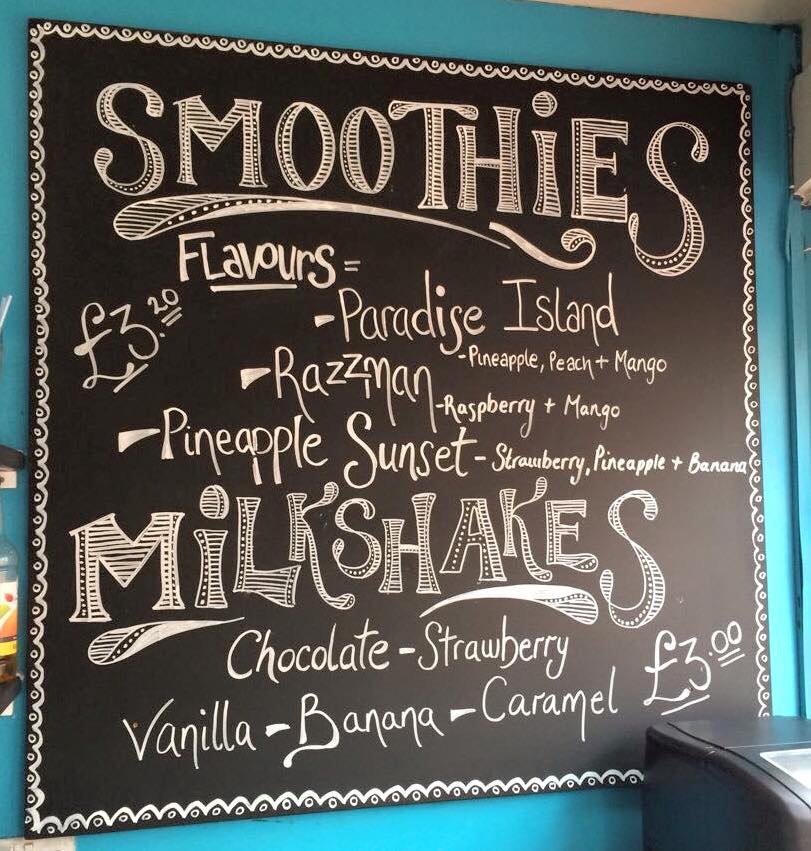 SMOOTHiES
FLavours =
£3.20
-Paradise Island
-Pineapple, Peach + Mango
-Razzman
-Raspberry + Mango
-Pineapple Sunset - Strawberry, Pineapple + Banana
MiLKSHAKES
Chocolate - Strawberry
£3.00
Vanilla - Banana - Caramel